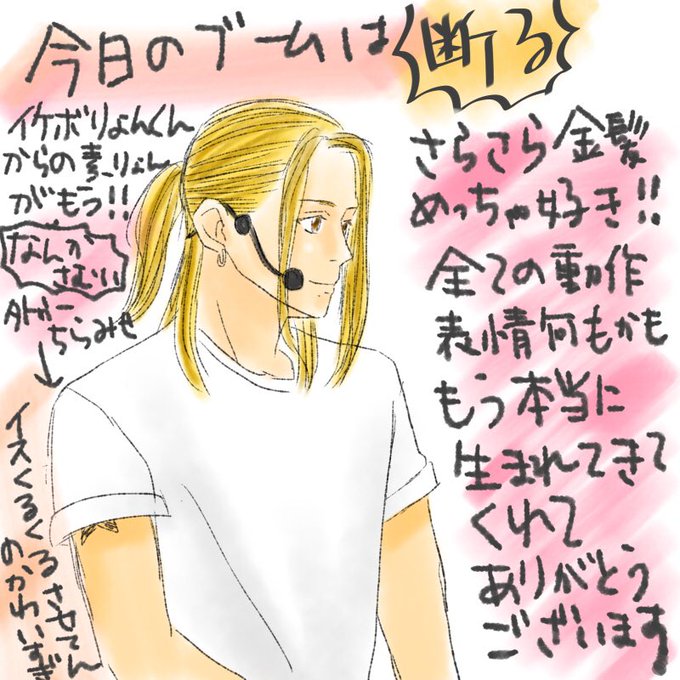 今日のブームは断る
イケボりょんくん
からの素ーりょん
がもう!!
なんか
さむい
タトゥー
ちらみせ
イスくるくるさせてん
のかわいすぎ
さらさら金髪
めっちゃ好き!!
全ての動作
表情何もかも
もう本当に
生まれてきて
くれて
ありがとう
ございます